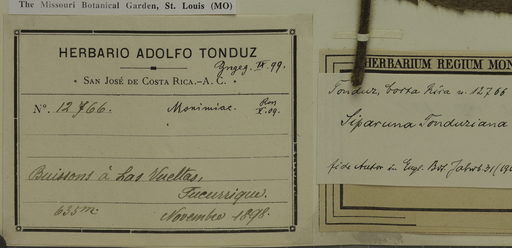 The Missouri Botanical Garden, St. Louis (MO)
HERBARIO ADOLFO TONDUZ
IX. 99.
SAN JOSÉ DE COSTA RICA.—A. C.
No. 12766. Monimiac.
X. 09.
Buissons à Las Vueltas,
Tucurrique.
635m Novembre 1898.
HERBARIUM REGIUM MON
Tonduz, Costa Rica n. 12766
Siparuna Tonduziana
fide Autor in Engl. Bot. Jahrb. 31 (190